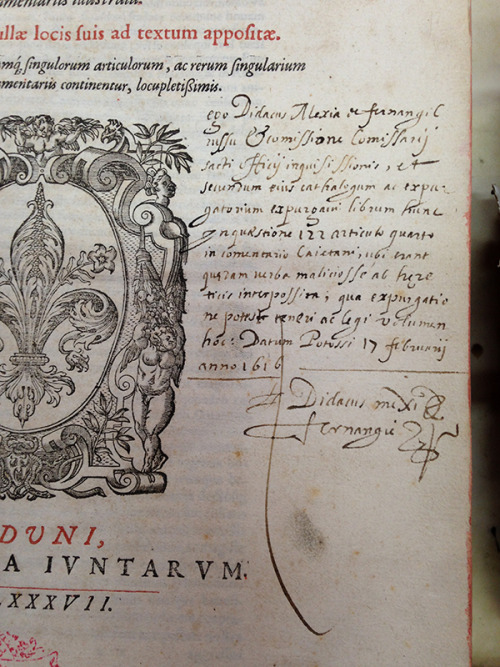 mentariis illustrata.
ullæ locis suis ad textum appositæ.
mq́; singulorum articulorum, ac rerum singularium
mmentariis continentur, locupletissimis.
ego Didacus Mexia de fernangil
iussu & comissione Comissarij
sacti officij inquisissionis, et
secundum eius cathalogum ac expur
gatorium expurgavi librum hunc
In quæstione 122 articulo quarto
in comentario Caietani, ubi erant
quædam verba maliciosse ab hære
ticis interpossita, qua expurgatio
ne potest teneri ac legi volumen
hoc: Datum Potossi 17 februarij
anno 1616
Didacus mexi
fernangil
DUNI,
A IVNTARVM.
LXXXVII.